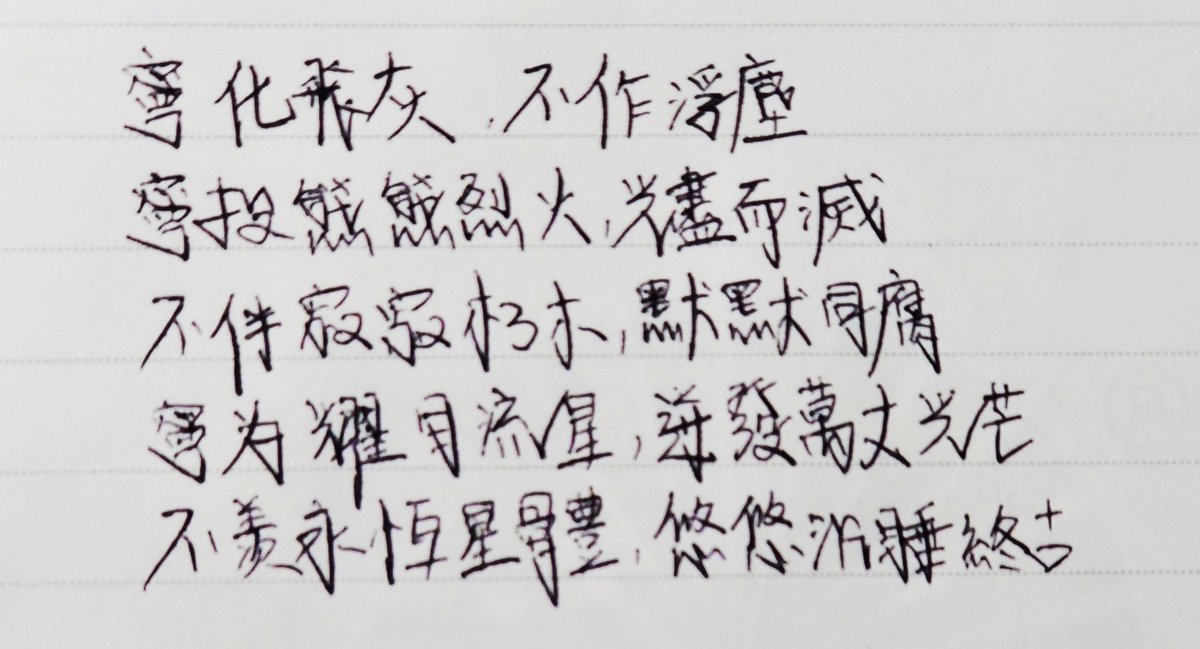 寧化飛灰,不作浮塵
寧投熊熊烈火,光盡而滅
不伴寂寂朽木,默默同腐
寧为耀目流星,迸發萬丈光芒
不羡永恒星體,悠悠沉睡終古